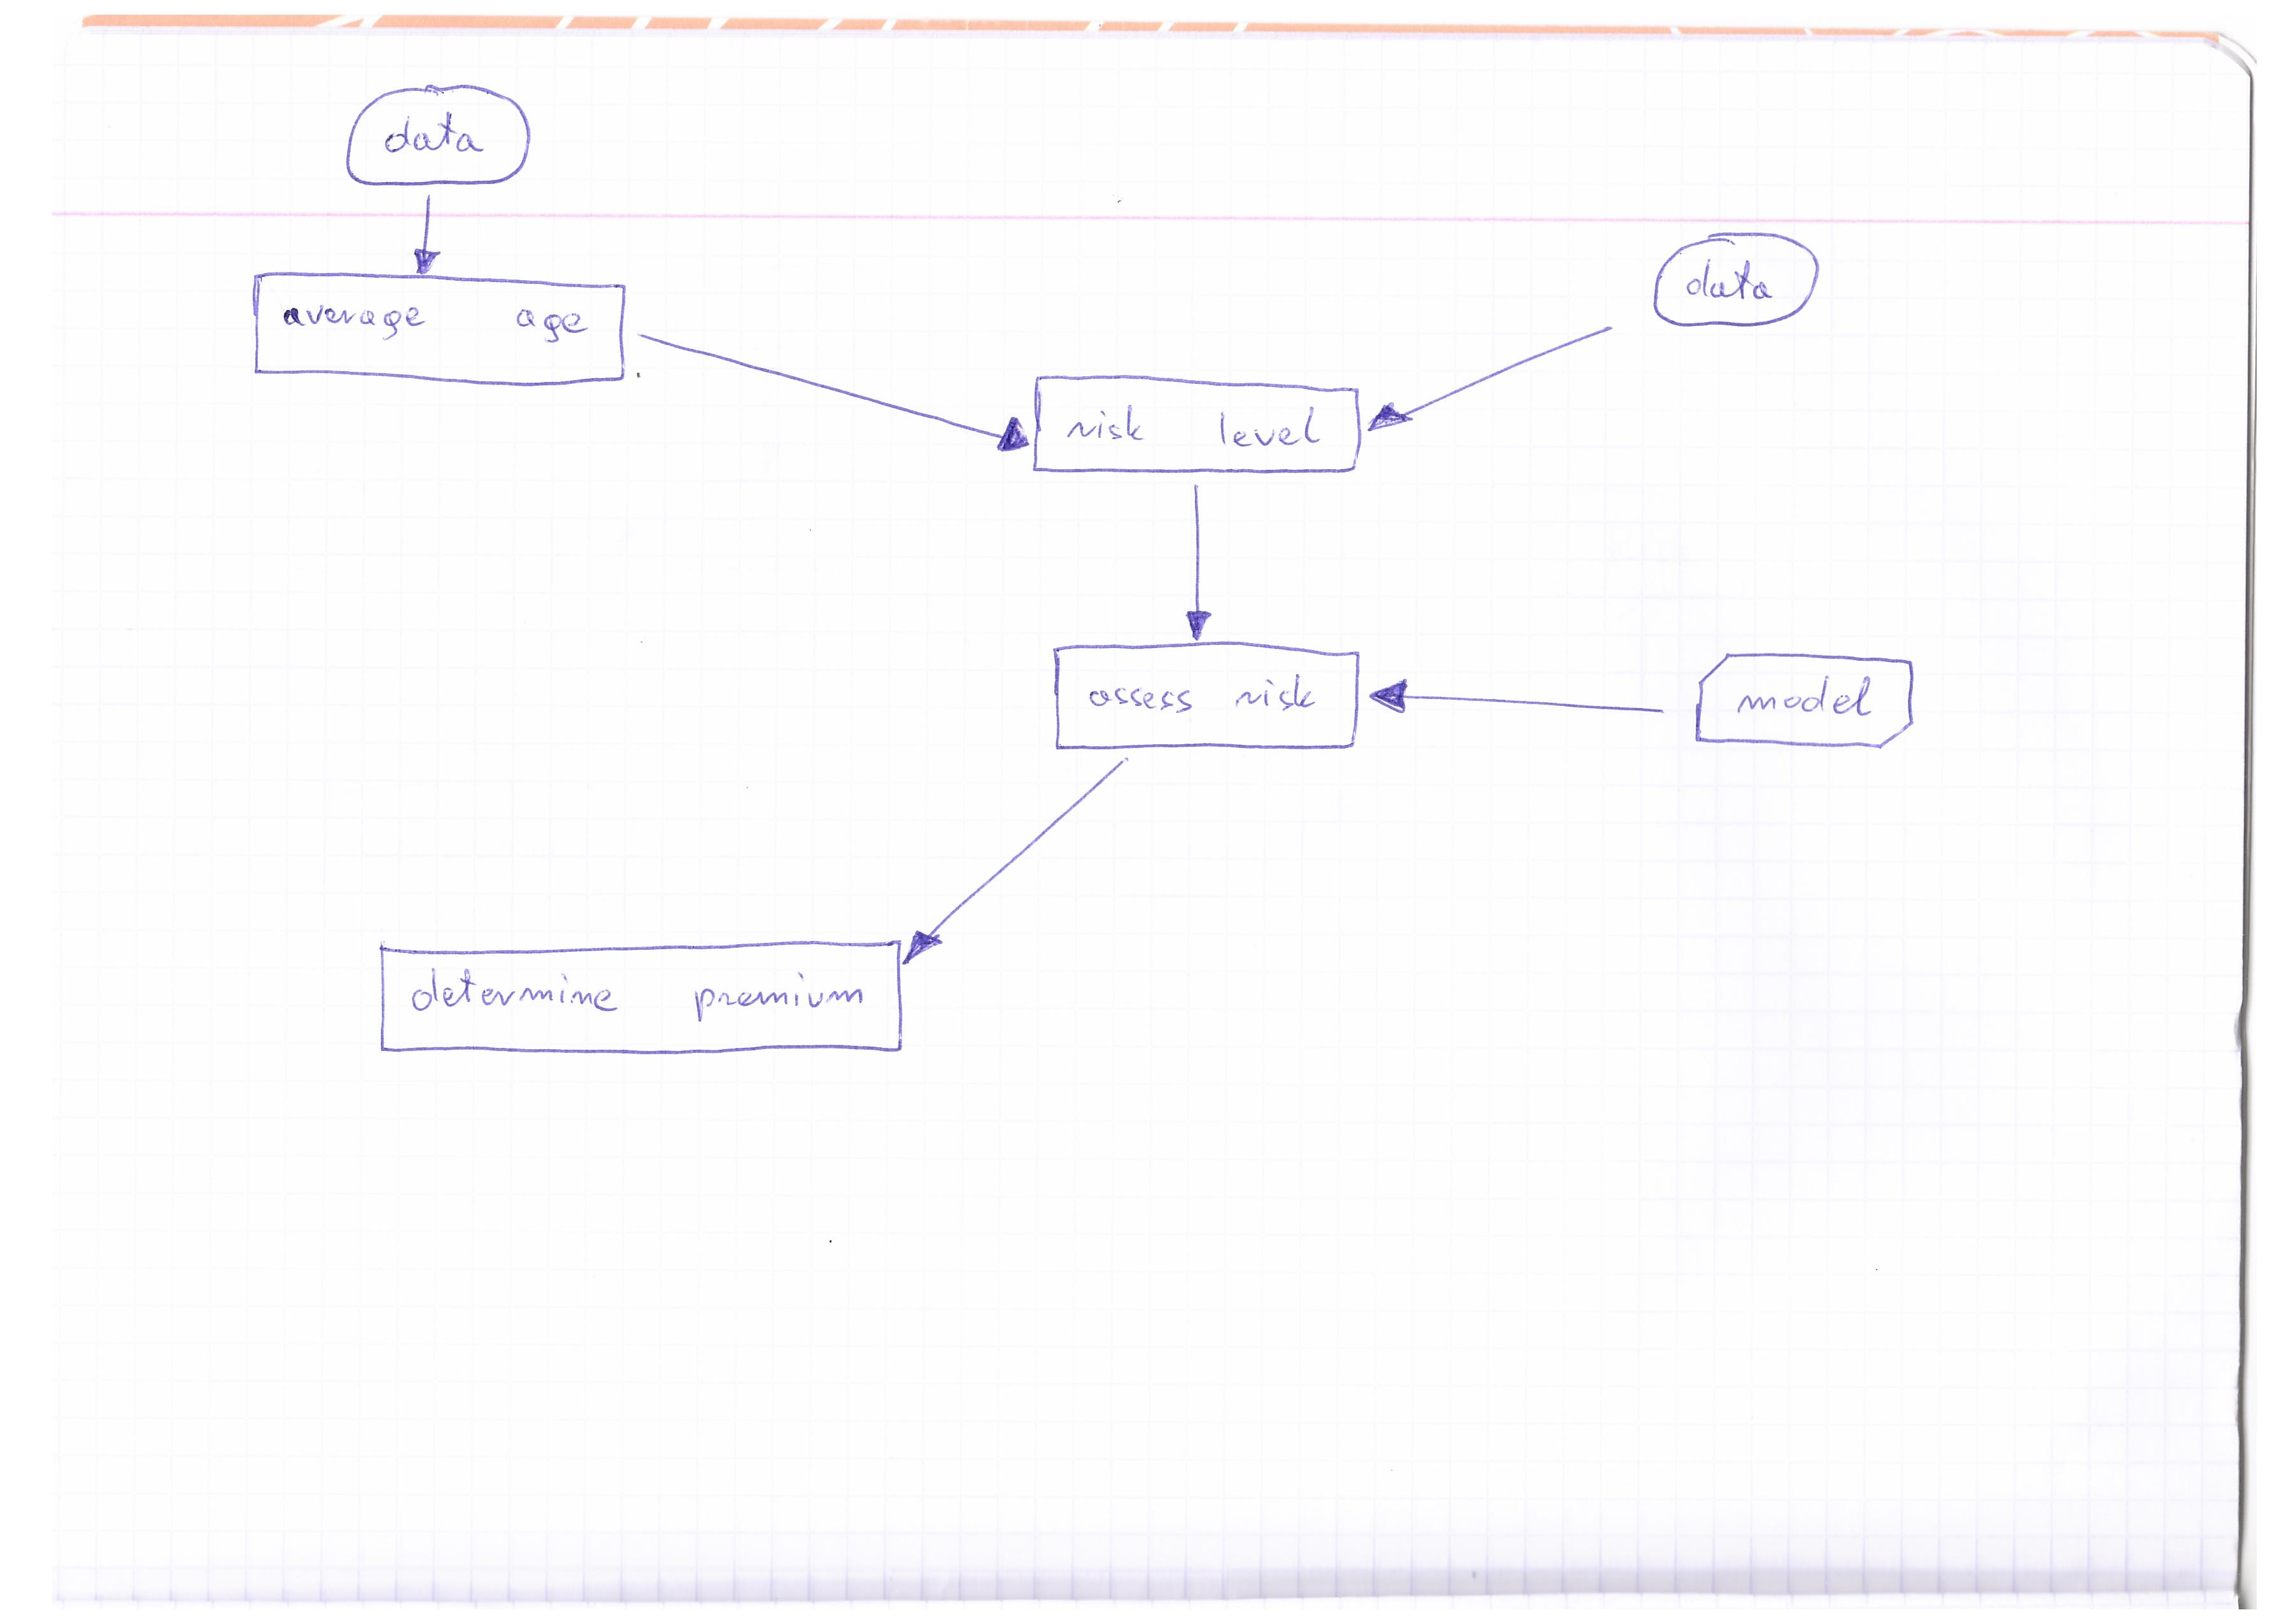 data
average age
data
risk level
assess risk
model
determine premium